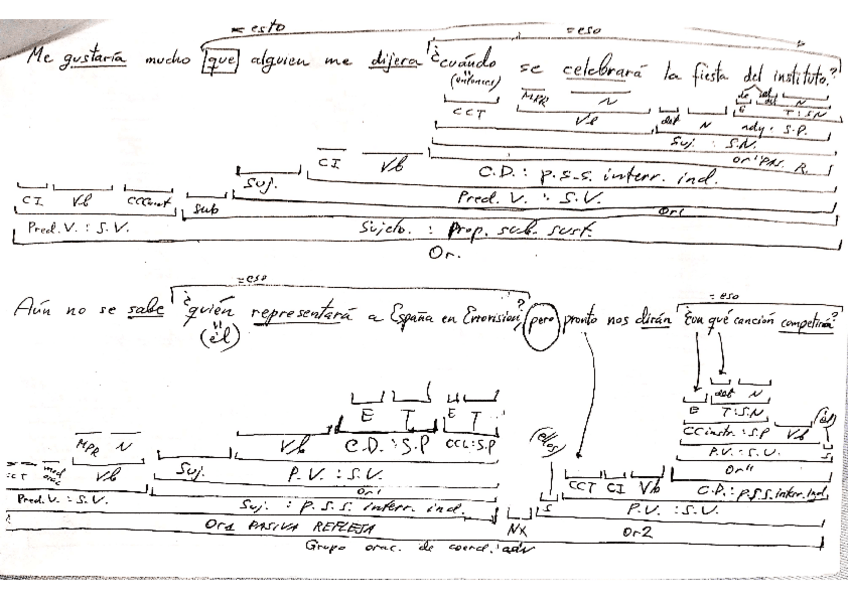 = esto
= eso
Me gustaría mucho que alguien me dijera ¿cuándo se celebrará la fiesta del instituto?
(entonces)
de el
MPR N E det N
CCT Vb det N T : S.N
ady. S.P.
Suj. : S.N.
CI Vb Or1 PAS. R.
Suj. C.D. : p.s.s. interr. ind.
CI Vb CCcant Sub Pred. V. : S.V.
Or1
Pred. V. : S.V. Sujeto. : Prop. sub. sust.
Or.
= eso = eso
Aún no se sabe ¿quién representará a España en Eurovisión? pero pronto nos dirán ¿con qué canción competirá?
(él)
det N
E T E T E T : S.N (él)
MPR N Vb C.D. : S.P CCL : S.P (ellos) CCinstr. : S.P Vb S
CCT mod orac Vb Suj. P.V. : S.V. P.V. : S.V.
Or1 CCT CI Vb Or11
Pred. V. : S.V. Suj. : p.s.s. interr. ind. S C.D. : p.s.s. interr. ind.
NX P.V. : S.V.
Or1 PASIVA REFLEJA Or2
Grupo orac. de coord. adv